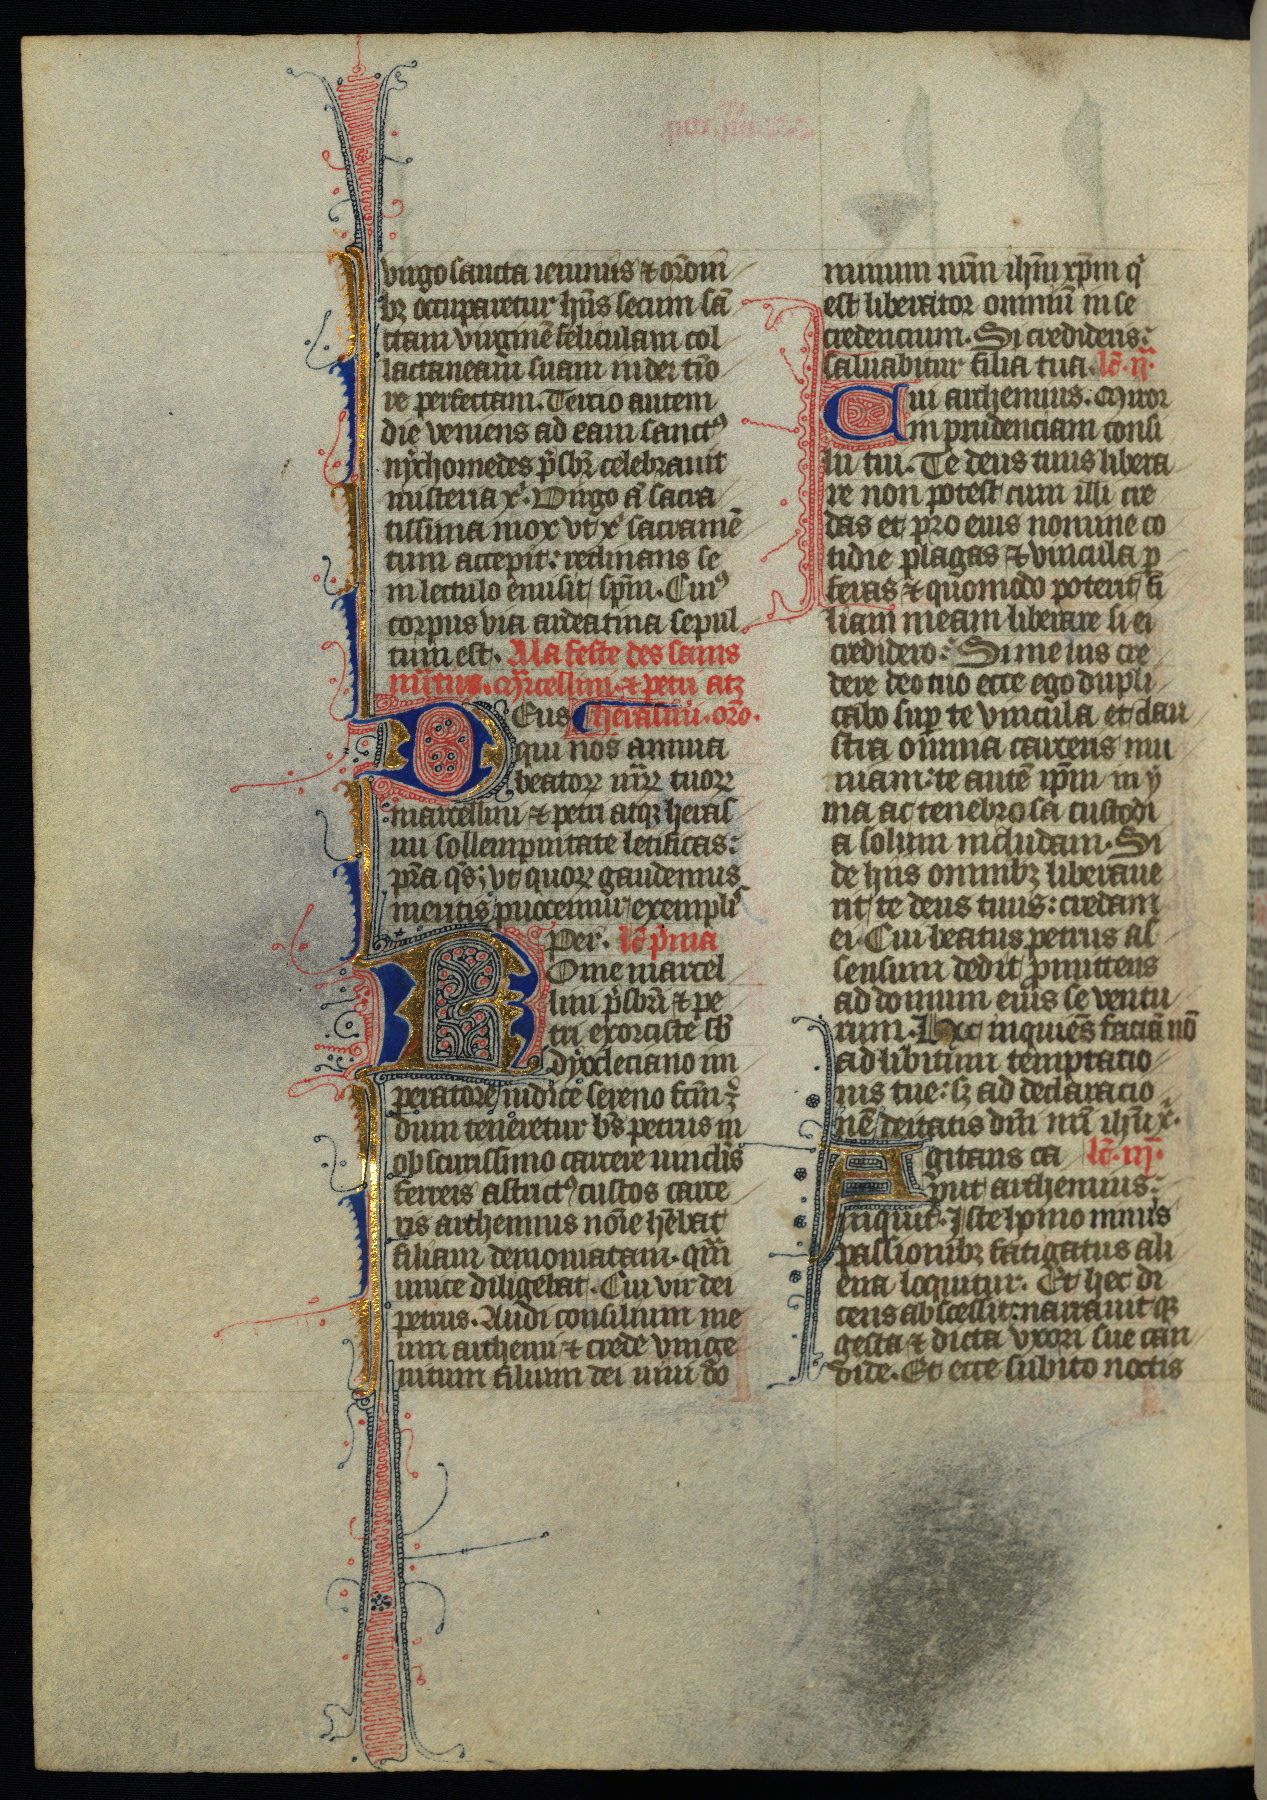 uirgo sancta ieiuniis ⁊ or̄oni
bꝫ occuparetur hn̄s secum sā
ctam virginē feliculam col
lactaneam suam in dei timo
re perfectam. Tercio autem
die veniens ad eam sanctꝰ
nychomedes p̄sbr̄ celebrauit
misteria xp̄i. Virgo aūt sacra
tissima mox vt xp̄i sacramē
tum accepit: reclinans se
in lectulo emisit sp̄m. Cuiꝰ
corpus via ardeatina sepul
tum est. A la feste des sains
mr̄tirs. Mr̄cellini. ⁊ petri atꝫ
Deus heralmi. or̄o.
qui nos annua
beatoꝝ mr̄ꝝ tuoꝝ
marcellini ⁊ petri atqꝫ heras
mi sollempnitate letificas:
pr̄a q̄s; vt quoꝝ gaudemus
meritis prouocemur exemplis
Per. lc̄. p̄ma
Rome marcel
lini p̄sbri ⁊ pe
tri exorciste sb̄
dyocleciano im
peratore iudice sereno sc̄m ꝫ
dum teneretur bs̄ petrus in
obscurissimo carcere uinclis
ferreis astrictꝰ custos carce
ris arthemius noīe hēbat
filiam demoniatam. quā
unice diligebat. Cui vir dei
petrus. Audi consilium me
um arthemi ⁊ crede vnige
nitum filium dei uiui do
minum nr̄m ihm̄ xp̄m qͥ
est liberator omniū in se
credencium. Si credideris:
saluabitur filia tua. lc̄. ij.
Cui arthemius. Miror
in prudenciam consi
lii tui. Te deus tuus libera
re non potest cum illi cre
das et pro eius nomine co
tidie plagas ⁊ vincula ꝑ
feras ⁊ quōmodo poterit fi
liam meam liberare si ei
credidero: Si me ius cre
dere deo tuo ecce ego dupli
cabo suꝑ te vincula et clau
stra omnia carceris mu
niam: te autē ip̄m in y
ma ac tenebrosa custodi
a solum includam. Si
de hiis omnibꝫ liberaue
rit te deus tuus: credam
ei. Cui beatus petrus as
sensum dedit promittens
ad domum eius se ventu
rum. Hoc inquiens faciā nō
ad libitum temptatio
nis tue: sꝫ ad declaracio
nē deitatis dn̄i nr̄i ihū xp̄i.
Agitans ca lc̄. iij.
put arthemius:
inquit. Iste homo nimis
passionibꝫ fatigatus ali
ena loquitur. Et hec di
cens abscessit: narrauit qꝫ
gesta ⁊ dicta vxori sue can
dide. Et ecce subito noctis